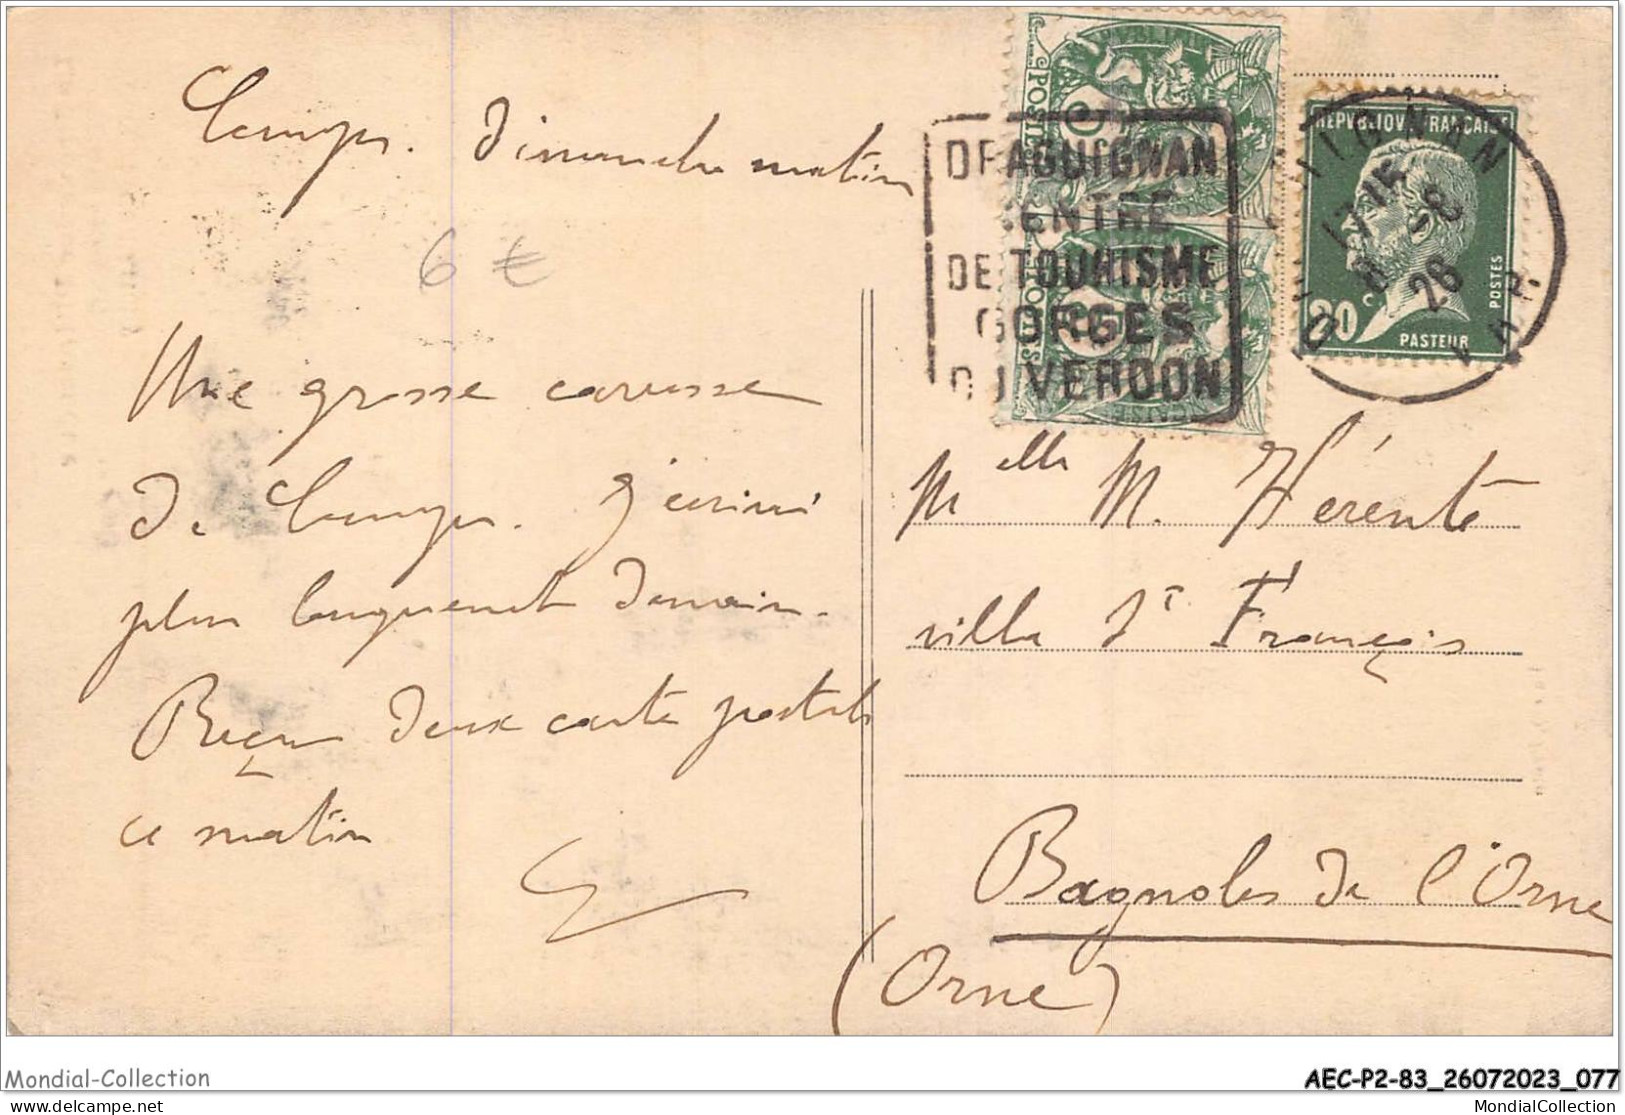 Camps. Dimanche matin
6 €
Une grosse caresse
de Camps. J'écrirai
plus longuement demain.
Reçu deux cartes postales
ce matin
REPVBLIQVE FRANCAISE
POSTES
20 c
PASTEUR
DRAGUIGNAN
CENTRE
DE TOURISME
GORGES
DU VERDON
DRAGUIGNAN
17 15
8 - 8
26
VAR
Melle M. Hérenté
villa St François
Bagnoles de l'Orne
(Orne)
Mondial-Collection
AEC-P2-83_26072023_077
www.delcampe.net
MondialCollection